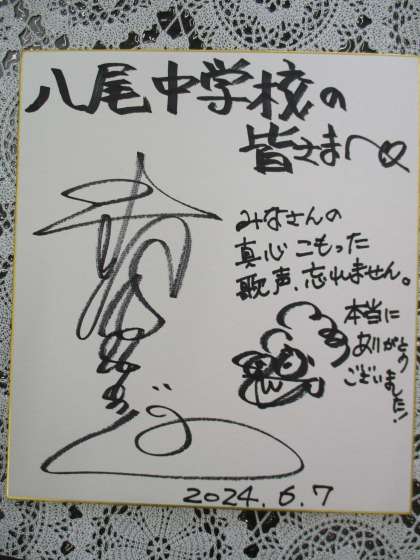 八尾中学校の
皆さまへ♡
みなさんの
真心こもった
歌声、忘れません。
本当に
ありがとう
ございました!
2024.6.7